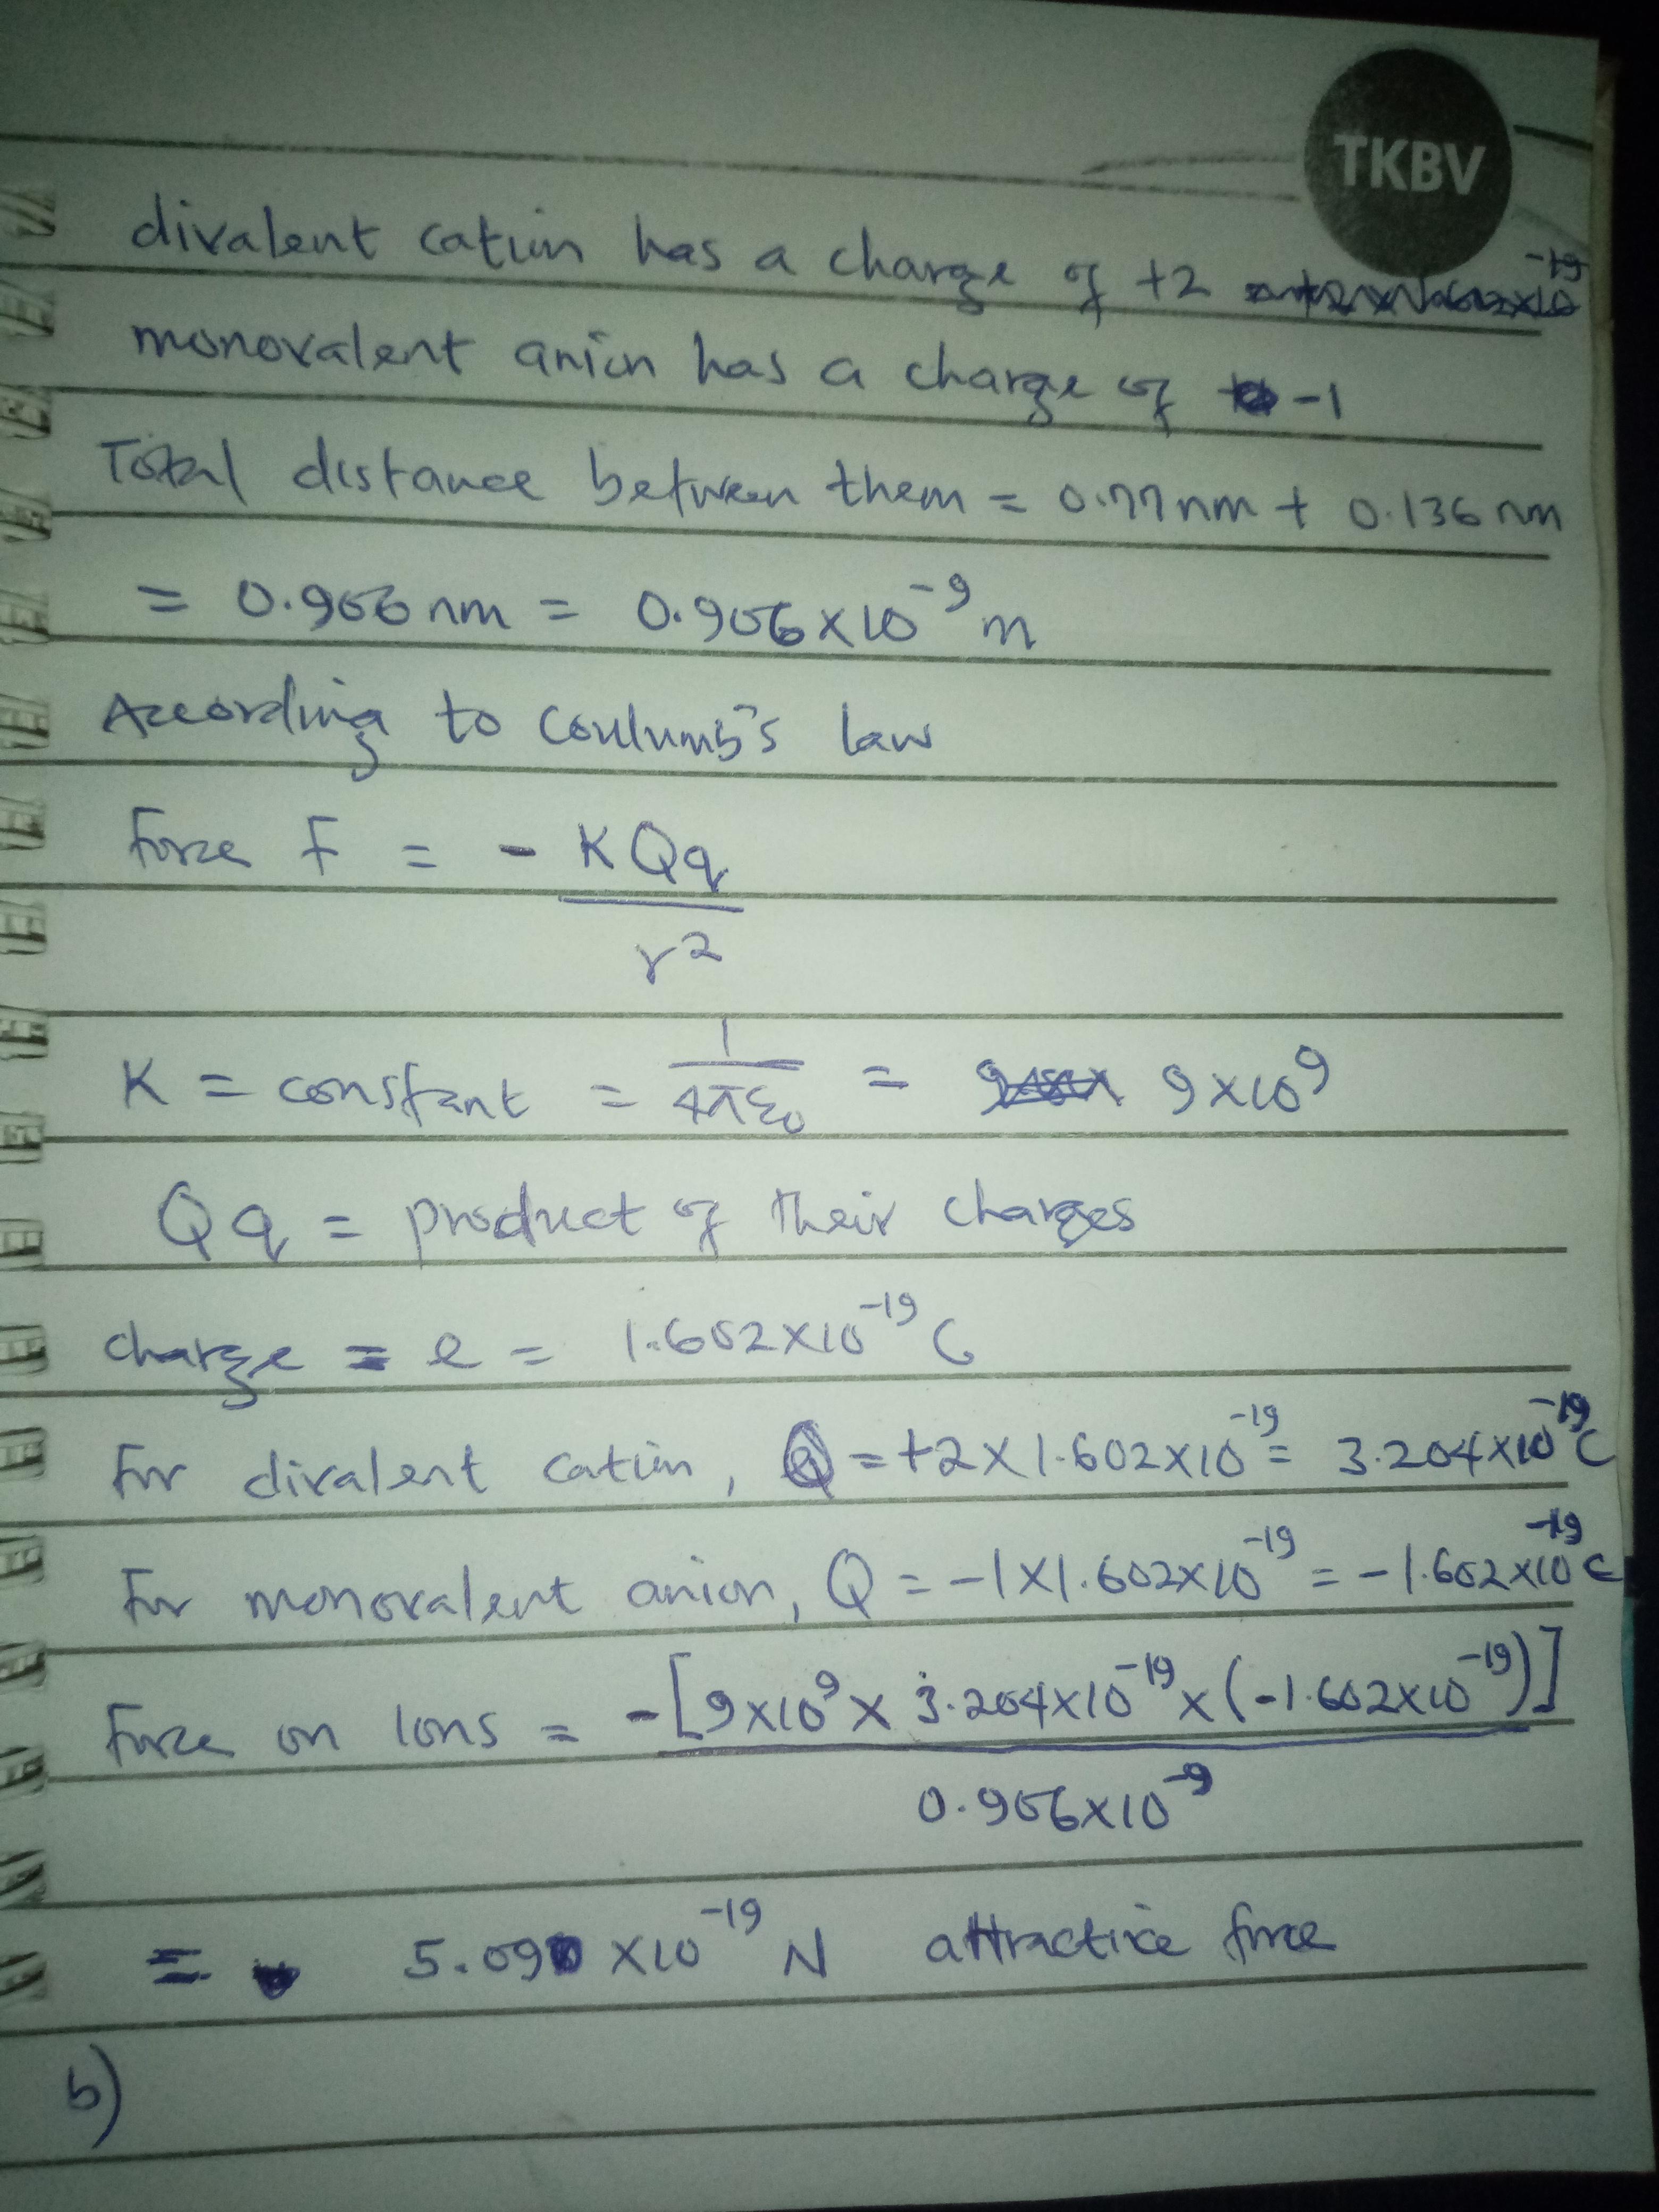 TKBV
divalent cation has a charge of +2
monovalent anion has a charge of -1
Total distance between them = 0.77nm + 0.136 nm
= 0.906 nm = 0.906 x 10⁻⁹ m
According to Coulumb's law
Force F = - KQq
r²
K = constant = 1/4πε₀ = 9x10⁹
Qq = product of their charges
charge = e = 1.602x10⁻¹⁹ C
For divalent cation, Q = +2 x 1.602x10⁻¹⁹ = 3.204x10⁻¹⁹ C
For monovalent anion, Q = -1x1.602x10⁻¹⁹ = -1.602x10⁻¹⁹ C
Force on Ions = -[9x10⁹ x 3.204x10⁻¹⁹ x (-1.602x10⁻¹⁹)]
0.906x10⁻⁹
= 5.090 x10⁻¹⁹ N attractive force
b)